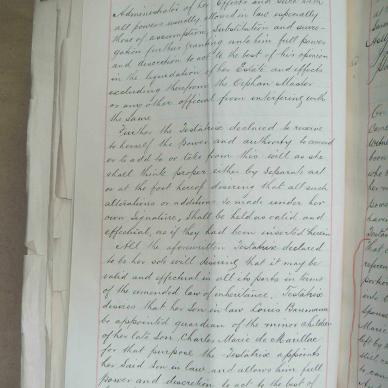 Administrator of her Effects and such with
all powers usually allowed in law especially
those of assumption, Substitution and surro-
gation further granting unto him full power
and discretion to act to the best of his opinion
in the liquidation of her Estate and effects
excluding therefrom the Orphan Master
or any other official from interfering with
the same
Further the Testatrix declared to reserve
to herself the power and authority to amend
or to add to or take from this will as she
shall think proper either by separate act
or at the foot hereof desiring that all such
alterations or additions so made under her
own Signature, shall be held as valid and
effectual, as if they had been inserted herein
All the aforewritten Testatrix declared
to be her sole will desiring that it may be
valid and effectual in all its parts in terms
of the amended law of inheritance. Testatrix
desires that her Son in law Louis Baumann
be appointed guardian of the minor children
of her late Son Charles Marie de Marillac
for that purpose the Testatrix appoints
her Said Son in law, and allows him full
power and discretion to act to the best of